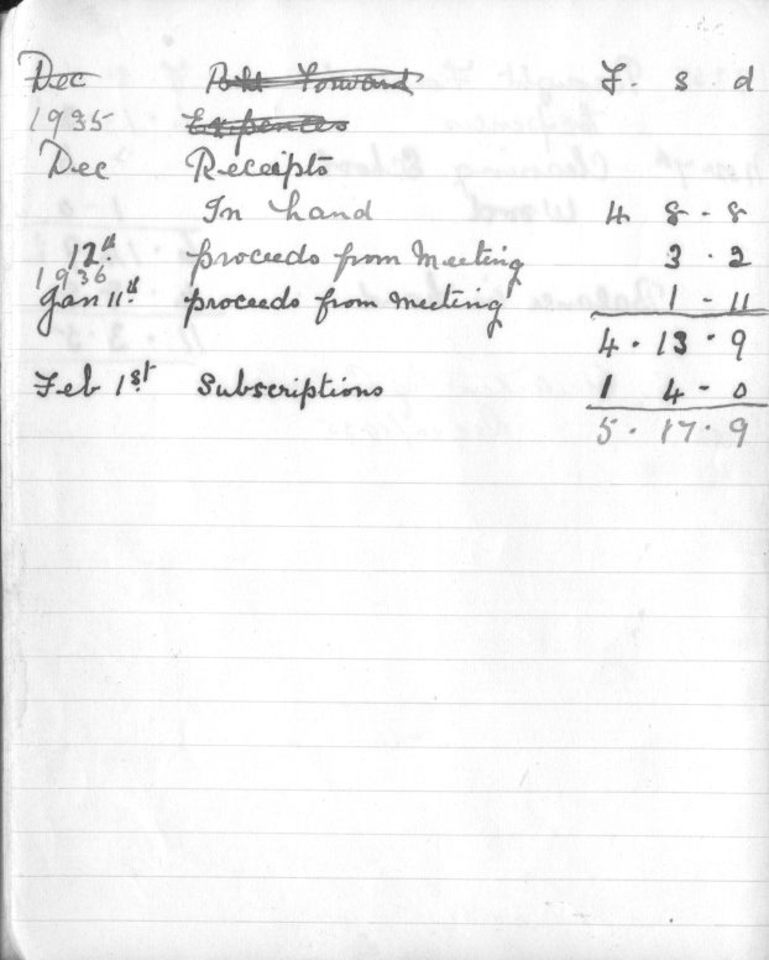 Dec Forward £. s. d
1935 Expences
Dec Receipts
In hand 4 8 - 8
12th proceeds from Meeting 3 . 2
1936
Jan 11th proceeds from Meeting 1 - 11
4 . 13 . 9
Feb 1st Subscriptions 1 4 - 0
5 . 17 . 9